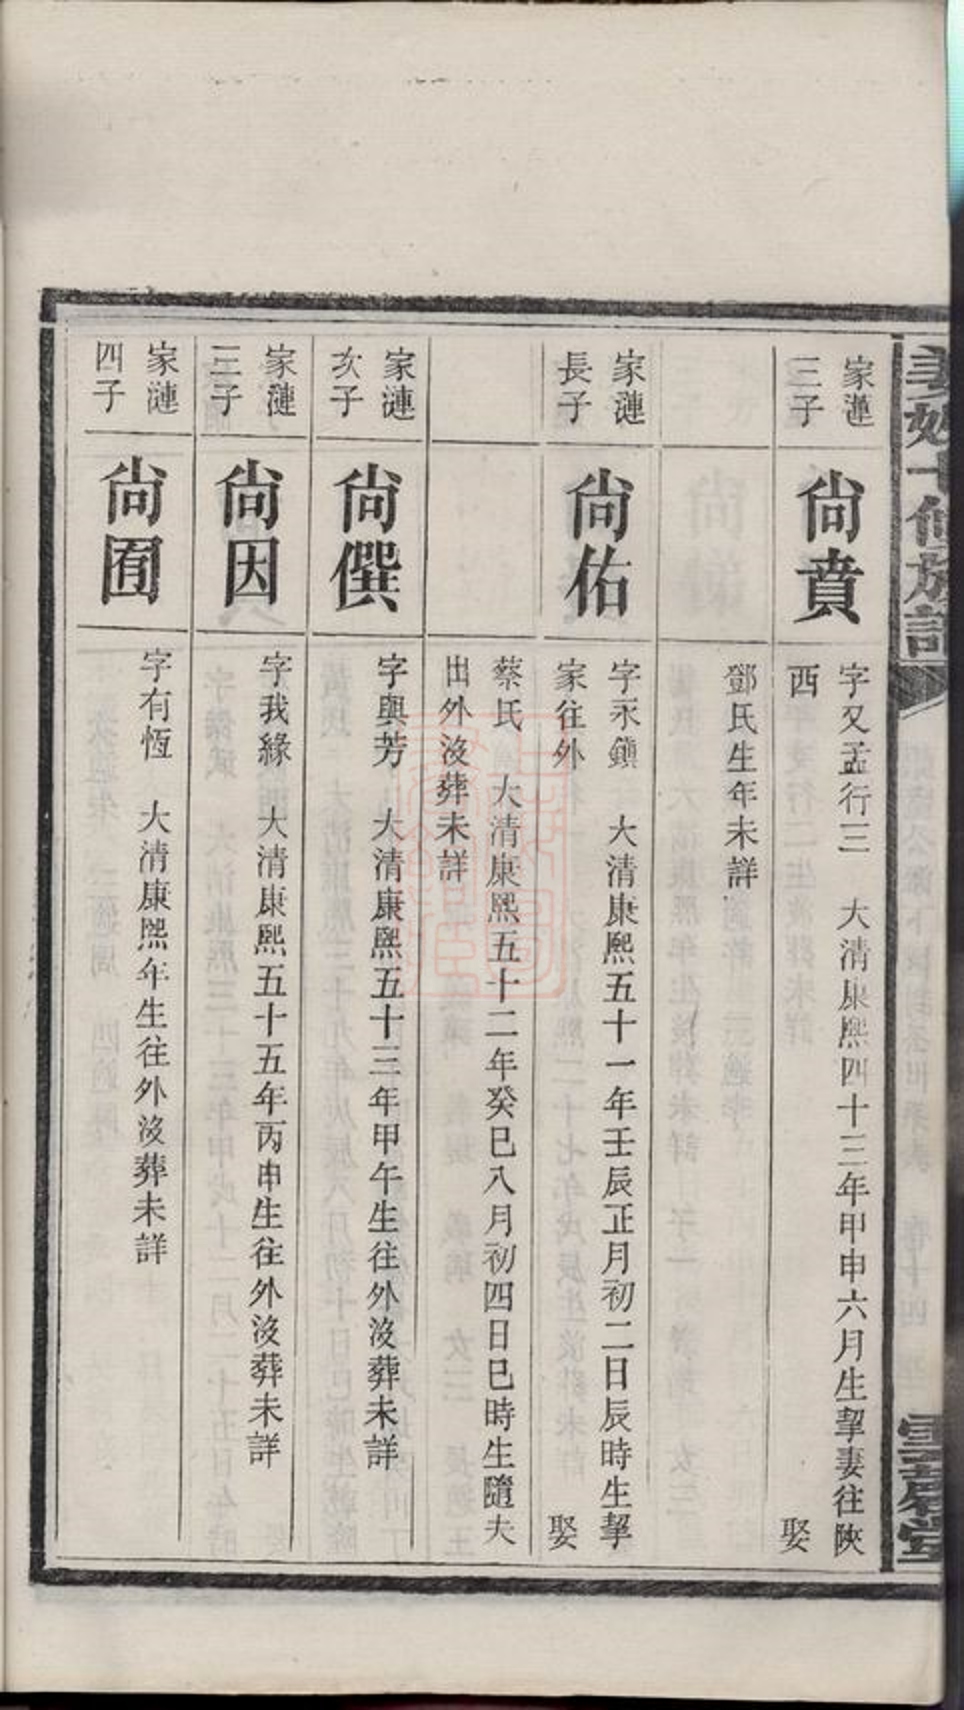 家漣
三子
尙賁
字又孟行三 大清康熙四十三年甲申六月生挈妻往陝
西 娶
鄧氏生年未詳
家漣
長子
尙佑
字永鎭 大清康熙五十一年壬辰正月初二日辰時生挈
家往外 娶
蔡氏 大清康熙五十二年癸巳八月初四日巳時生隨夫
出外沒葬未詳
家漣
次子
尙僎
字與芳 大清康熙五十三年甲午生往外沒葬未詳
家漣
三子
尙因
字我緣 大清康熙五十五年丙申生往外沒葬未詳
家漣
四子
尙囿
字有恆 大清康熙年生往外沒葬未詳